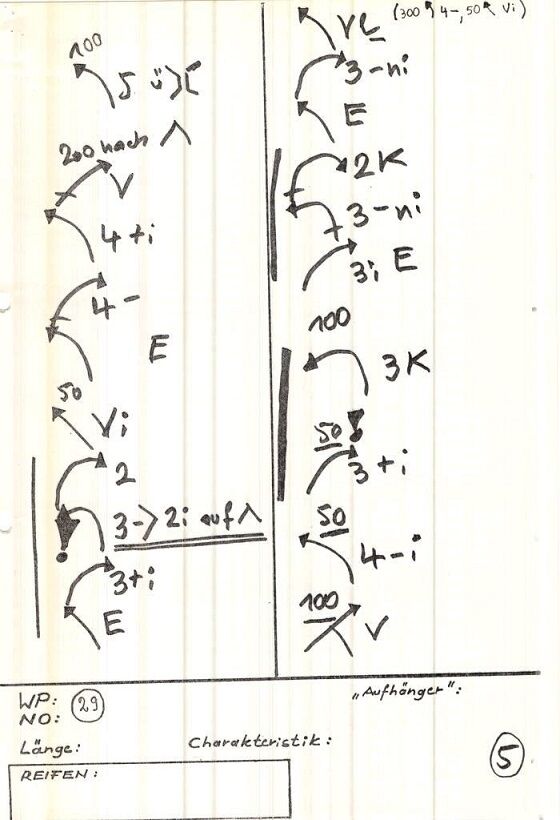 100
5 ü>
200 nach Λ
V
4+i
4-
E
50
Vi
2
3->2i auf Λ
3+i
E
(300 4-, 50 Vi)
VE
3-ni
E
2K
3-ni
3i E
100
3K
50
3+i
50
4-i
100
V
WP: 29
NO:
Länge:
Charakteristik:
REIFEN:
„Aufhänger":
5